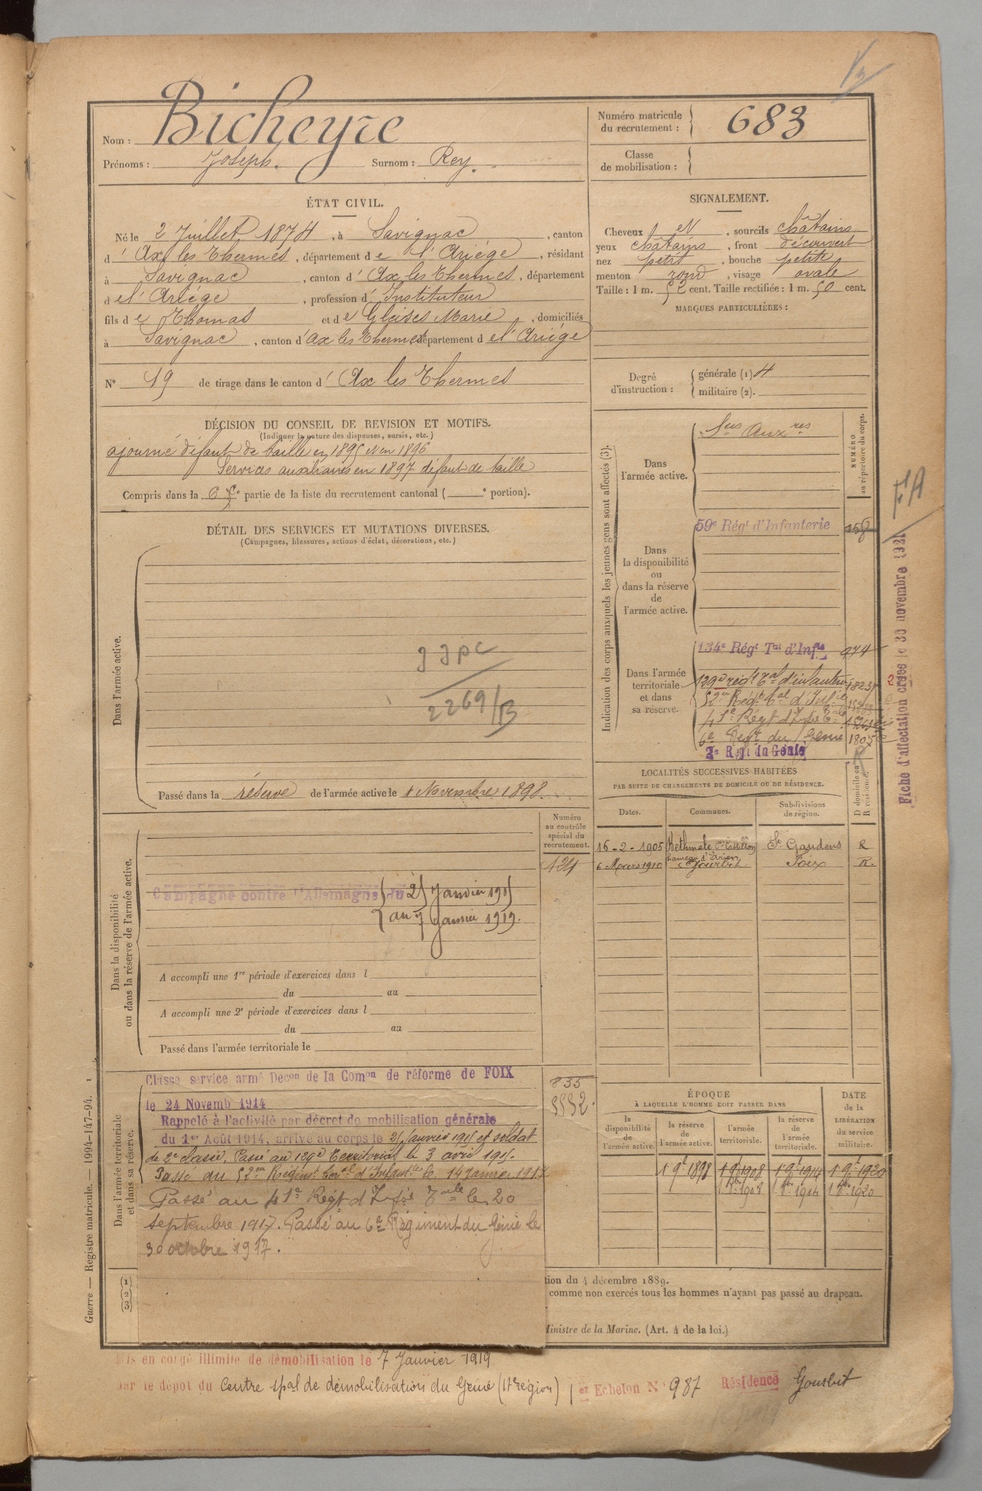 Nom : Bicheyre
Prénoms : Joseph. Surnom : Rey.
Numéro matricule du recrutement : 683
Classe de mobilisation :
ÉTAT CIVIL.
Né le 2 Juillet 1874, à Savignac, canton
d' Ax les Thermes, département de l'Ariége, résidant
à Savignac, canton d' Ax les Thermes, département
de l'Ariége, profession d' Instituteur
fils de Thomas et de Marie, domiciliés
à Savignac, canton d' Ax les Thermes département de l'Ariége
N° 19 de tirage dans le canton d' Ax les Thermes
SIGNALEMENT.
Cheveux et, sourcils châtains
yeux châtains, front découvert
nez petit, bouche petite
menton rond, visage ovale
Taille : 1 m. 52 cent. Taille rectifiée : 1 m. 50 cent.
MARQUES PARTICULIÈRES :
Degré d'instruction : générale (1) 4
militaire (2).
DÉCISION DU CONSEIL DE REVISION ET MOTIFS.
(Indiquer la nature des dispenses, sursis, etc.)
ajourné défaut de taille en 1895 et en 1896
Services auxiliaires en 1897 défaut de taille
Compris dans la 6e partie de la liste du recrutement cantonal ( e portion).
DÉTAIL DES SERVICES ET MUTATIONS DIVERSES.
(Campagnes, blessures, actions d'éclat, décorations, etc.)
Dans l'armée active.
2269/B
Passé dans la réserve de l'armée active le 1 Novembre 1898.
Indication des corps auxquels les jeunes gens sont affectés (3).
NUMÉRO au répertoire du corps.
Dans l'armée active. Sces Auxres
Dans la disponibilité ou dans la réserve de l'armée active.
59e Régt d'Infanterie
Dans l'armée territoriale et dans sa réserve.
134e Régt Tal d'Infie 974
129e régt Tal d'infanterie
52me Régt Tal d'Infie
6e Régt du Génie
2e Régt du Génie
Fiche d'affectation créée le 30 novembre 1921
LOCALITÉS SUCCESSIVES HABITÉES
PAR SUITE DE CHANGEMENTS DE DOMICILE OU DE RÉSIDENCE.
Dates. Communes. Subdivisions de région. D domicile ou R résidence.
16-2-1905 St Gaudens R
6 Mars 1910 Gourbit Foix R.
Numéro au contrôle spécial du recrutement.
Dans la disponibilité ou dans la réserve de l'armée active.
Campagne contre l'Allemagne du 25 Janvier 1915
au 7 Janvier 1919.
A accompli une 1re période d'exercices dans l
du au
A accompli une 2e période d'exercices dans l
du au
Passé dans l'armée territoriale le
Dans l'armée territoriale et dans sa réserve.
Classé service armé Decon de la Comon de réforme de FOIX
le 24 Novemb 1914
Rappelé à l'activité par décret de mobilisation générale
du 1er Août 1914, arrivé au corps le 25 Janvier 1915 et soldat
de 2e classe. Passé au 129e Territorial le 3 avril 1915.
Passé au 52me Régiment Terral d'Infanterie le 14 Janvier 1917
Passé au 41e Régt d'Infie Tale le 20
septembre 1917. Passé au 6e Régiment du Génie le
30 octobre 1917.
ÉPOQUE À LAQUELLE L'HOMME DOIT PASSER DANS
la disponibilité de l'armée active. la réserve de l'armée active. l'armée territoriale. la réserve de l'armée territoriale. DATE de la LIBÉRATION du service militaire.
1 9bre 1898 1 9bre 1908 1 9bre 1914 1 9bre 1920
tion du 4 décembre 1889.
comme non exercés tous les hommes n'ayant pas passé au drapeau.
Ministre de la Marine. (Art. 4 de la loi.)
Guerre — Registre matricule. — 1994-147-94.
Mis en congé illimité de démobilisation le 7 Janvier 1919
par le dépôt du Centre spal de démobilisation du Génie (17e région) 1er Echelon N° 987 Résidence Gourbit